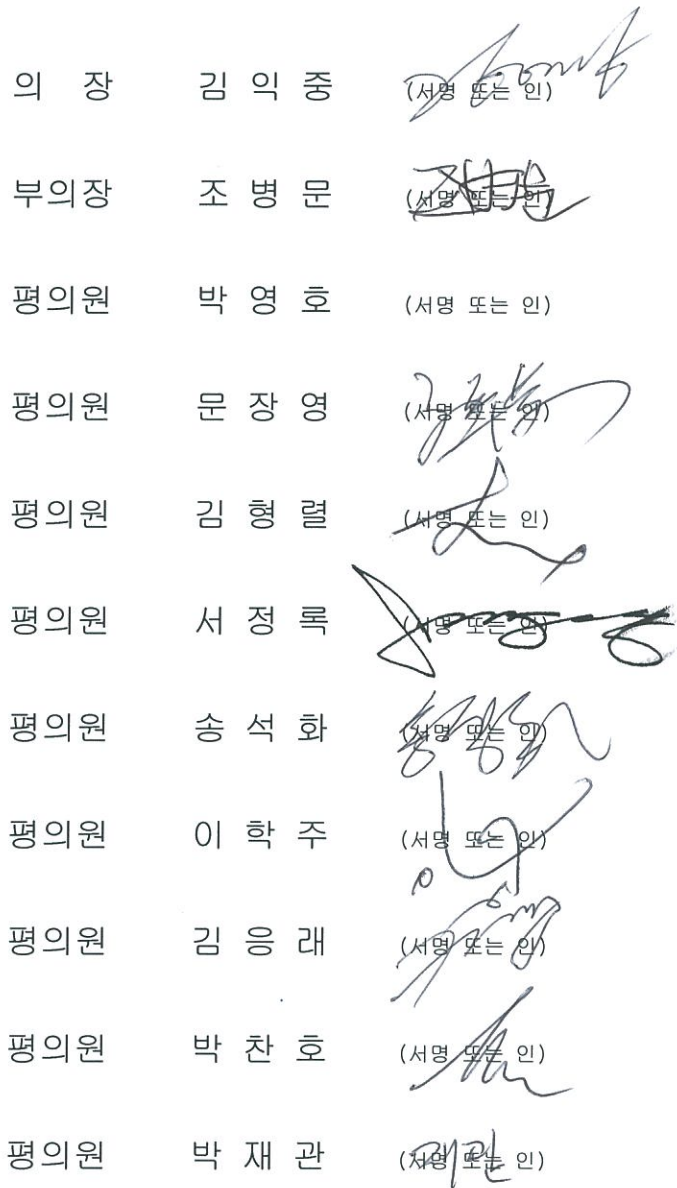 의 장 김 익 중 (서명 또는 인)
부의장 조 병 문 (서명 또는 인)
평의원 박 영 호 (서명 또는 인)
평의원 문 장 영 (서명 또는 인)
평의원 김 형 렬 (서명 또는 인)
평의원 서 정 록 (서명 또는 인)
평의원 송 석 화 (서명 또는 인)
평의원 이 학 주 (서명 또는 인)
평의원 김 응 래 (서명 또는 인)
평의원 박 찬 호 (서명 또는 인)
평의원 박 재 관 (서명 또는 인)